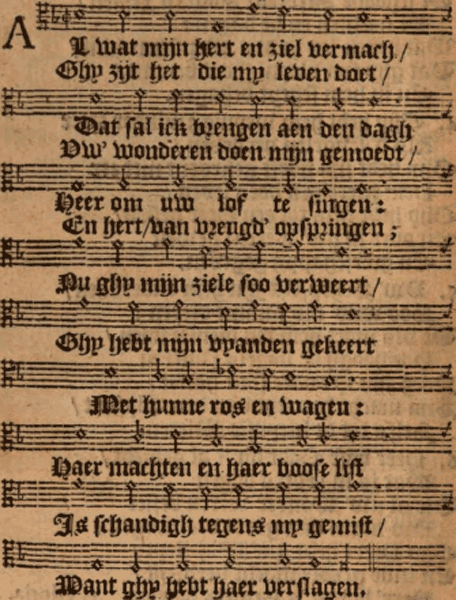 AL wat mijn hert en ziel vermach /
Ghy zijt het die my leven doet /
Dat sal ick brengen aen den dagh
Uw' wonderen doen mijn gemoedt /
Heer om uw lof te singen :
En hert/van vreugd' opspringen ;
Nu ghy mijn ziele soo verweert /
Ghy hebt mijn vyanden gekeert
Met hunne ros en wagen :
Haer machten en haer boose list
Is schandigh tegens my gemist /
Want ghy hebt haer verslagen.